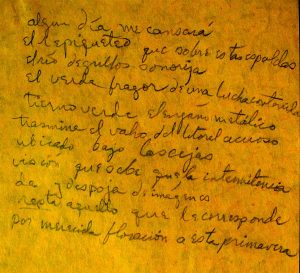 algún día me cansará
el repiqueteo que sobre estas espaldas
el verde fragor de una lucha contenida
tierno verde engaño metálico
trasmina el vaho del litoral acuoso
ubicado bajo las cejas
visión que sabe que la intermitencia
da despoja de imágenes
resta aquello que le corresponde
por merecida floración a esta primavera